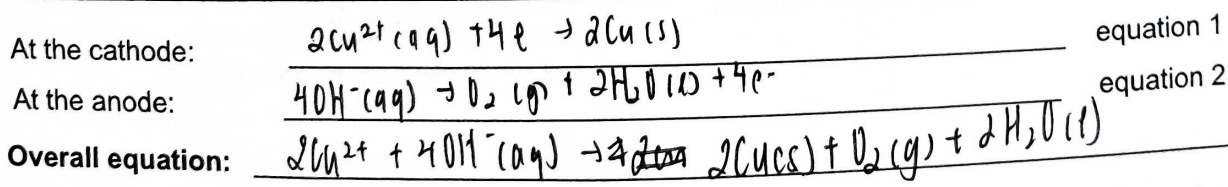 At the cathode: 2Cu²⁺ (aq) + 4e → 2Cu (s) equation 1
At the anode: 4OH⁻(aq) → O₂ (g) + 2H₂O (l) + 4e⁻ equation 2
Overall equation: 2Cu²⁺ + 4OH⁻(aq) → 2Cu(s) + O₂(g) + 2H₂O(l)